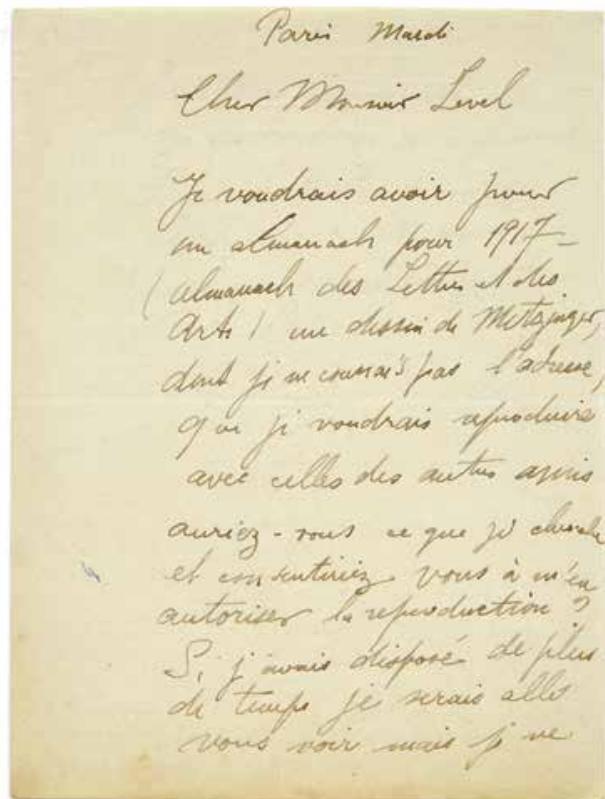 Paris Mardi
Cher Monsieur Level
Je voudrais avoir pour
un almanach pour 1917 –
(almanach des Lettres et des
Arts) un dessin de Metzinger,
dont je ne connais pas l'adresse,
que je voudrais reproduire
avec celles des autres amis
auriez-vous ce que je cherche
et consentiriez vous à m'en
autoriser la reproduction ?
Si j'avais disposé de plus
de temps je serais allé
vous voir mais je ne